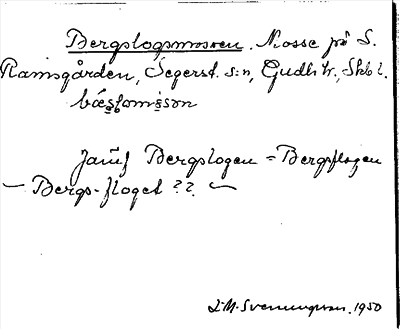 Bergslogsmosen. Mosse på S.
Ramsgården, Segerst. s:n, Gudh tr., Skbl.
bæs̩lomisən
Jämf Bergslogen = Bergsflogen
– Bergs-floget ??. –
1950